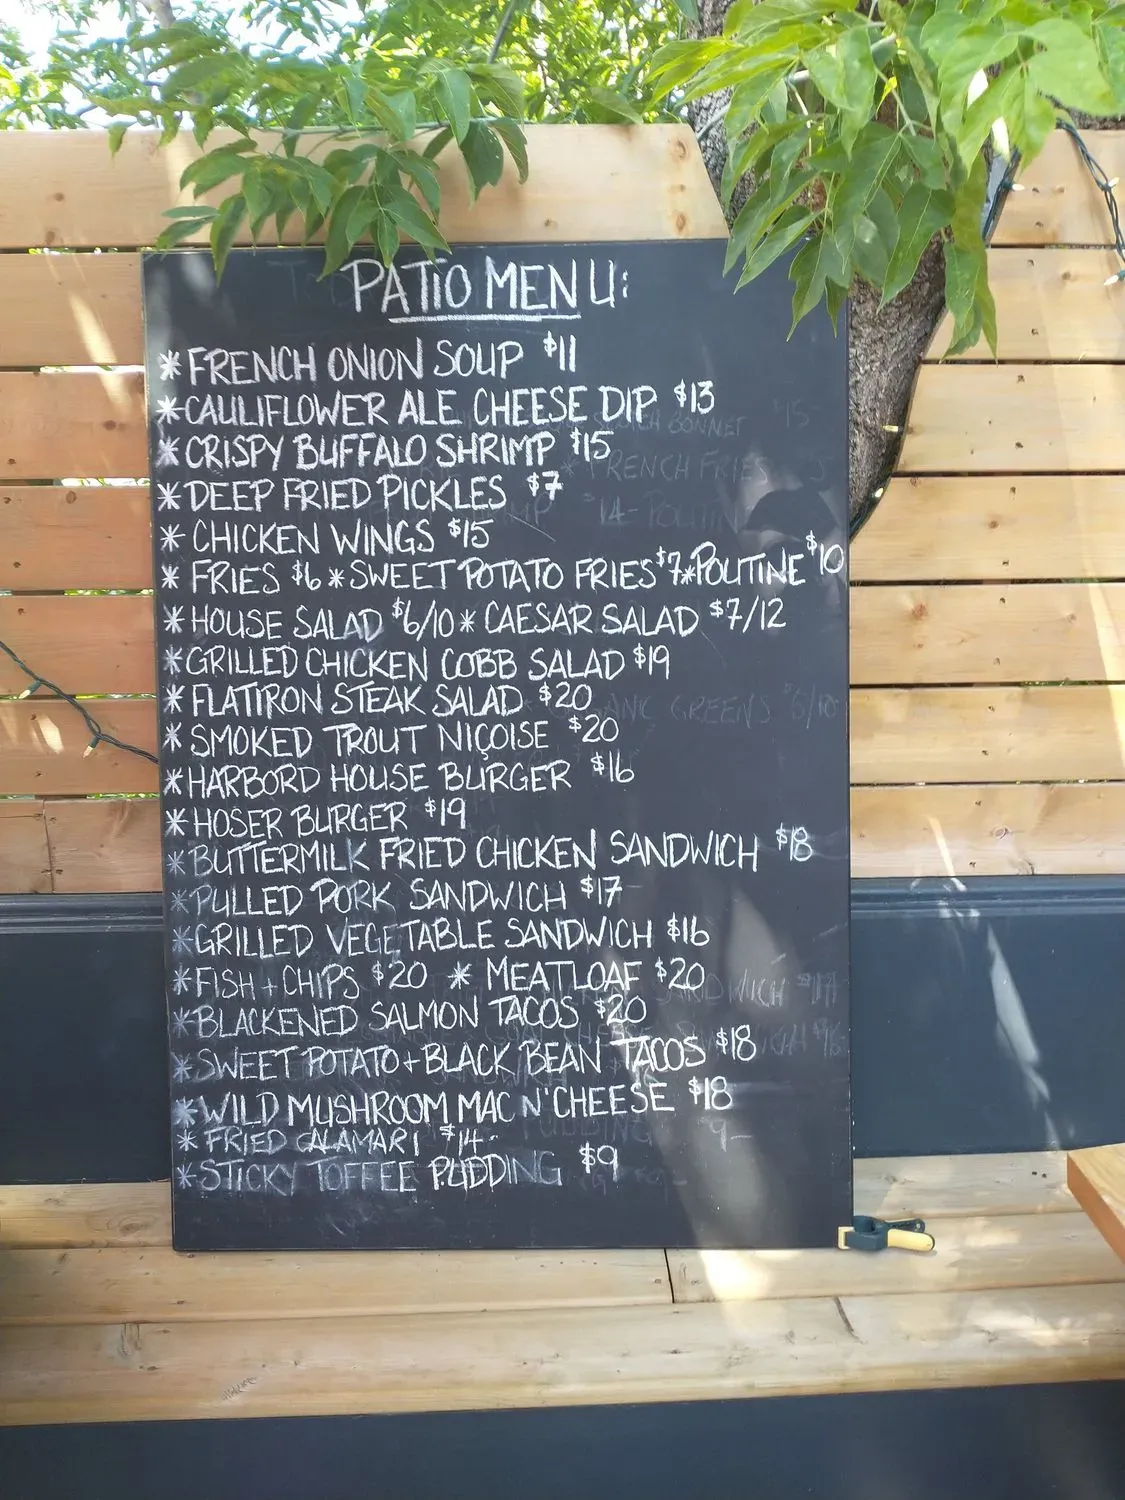 PATIO MENU:
* FRENCH ONION SOUP $11
* CAULIFLOWER ALE CHEESE DIP $13
* CRISPY BUFFALO SHRIMP $15
* DEEP FRIED PICKLES $7
* CHICKEN WINGS $15
* FRIES $6 * SWEET POTATO FRIES $7 * POUTINE $10
* HOUSE SALAD $6/10 * CAESAR SALAD $7/12
* GRILLED CHICKEN COBB SALAD $19
* FLATIRON STEAK SALAD $20
* SMOKED TROUT NIÇOISE $20
* HARBORD HOUSE BURGER $16
* HOSER BURGER $19
* BUTTERMILK FRIED CHICKEN SANDWICH $18
* PULLED PORK SANDWICH $17
* GRILLED VEGETABLE SANDWICH $16
* FISH + CHIPS $20 * MEATLOAF $20
* BLACKENED SALMON TACOS $20
* SWEET POTATO + BLACK BEAN TACOS $18
* WILD MUSHROOM MAC N' CHEESE $18
* FRIED CALAMARI $14-
* STICKY TOFFEE PUDDING $9